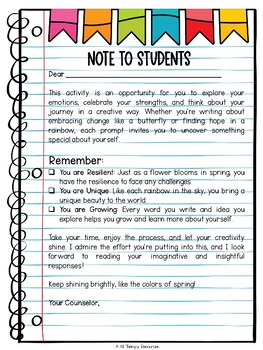 NOTE TO STUDENTS
Dear
This activity is an opportunity for you to explore your
emotions, celebrate your strengths, and think about your
journey in a creative way. Whether you're writing about
embracing change like a butterfly or finding hope in a
rainbow, each prompt invites you to uncover something
special about yourself.
Remember:
You are Resilient: Just as a flower blooms in spring, you
have the resilience to face any challenges.
You are Unique: Like each rainbow in the sky, you bring a
unique beauty to the world.
You are Growing: Every word you write and idea you
explore helps you grow and learn more about yourself.
Take your time, enjoy the process, and let your creativity
shine. I admire the effort you're putting into this, and I look
forward to reading your imaginative and insightful
responses!
Keep shining brightly, like the colors of spring!
Your Counselor,
Therapy Resources